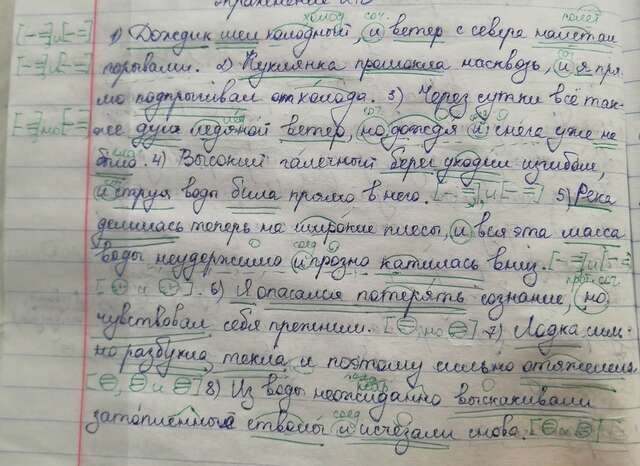 1) Дождик шел холодный, и ветер с севера налетал
порывами. 2) Кухлянка промокла насквозь, и я пря-
мо подпрыгивал от холода. 3) Через сутки всё так-
же дул ледяной ветер, но дождя и снега уже не
было. 4) Высокий галечный берег уходил изгибом,
и струя воды била прямо в него. [- =], и [- =] 5) Река
делилась теперь на широкие плесы, и вся эта масса
воды неудержимо и грозно катилась вниз. [- =] и [- =]
6) Я опасался потерять сознание, но
чувствовал себя прежним. 7) Лодка силь-
но разбухла, текла, и поэтому сильно отяжелела
8) Из воды неожиданно выскакивали
затопленные стволы и исчезали снова.